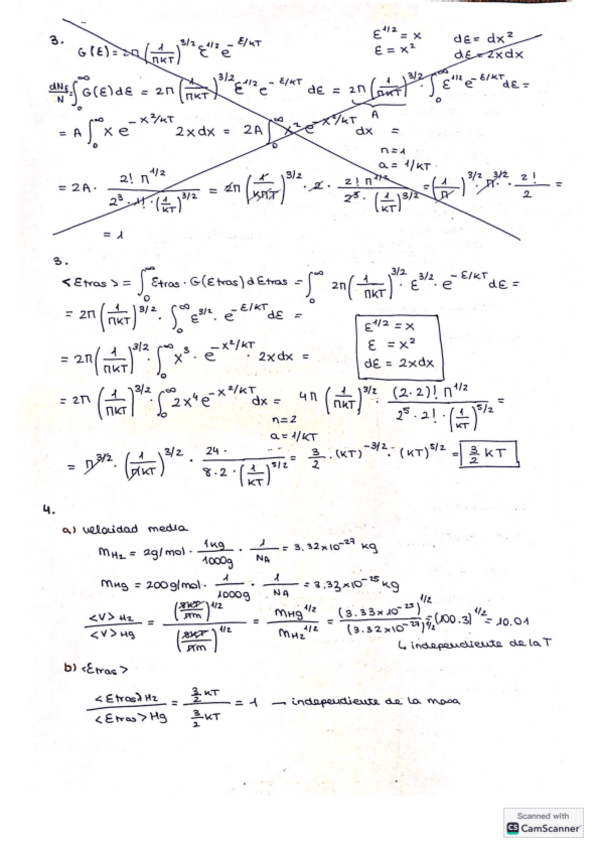 3. G(ε) = 2π (1/πKT)^3/2 ε^1/2 e^-ε/KT    ε^1/2 = x    dε = dx²
ε = x²    dε = 2xdx
dNε/N ∫₀^∞ G(ε)dε = 2π (1/πKT)^3/2 ε^1/2 e^-ε/KT dε = 2π (1/πKT)^3/2 · ∫₀^∞ ε^1/2 e^-ε/KT dε =
A
= A ∫₀^∞ x e^-x²/KT 2xdx = 2A ∫₀^∞ x² e^-x²/KT dx =
n=1
a = 1/KT
= 2A · 2! π^1/2 / 2³ · 1! · (1/KT)^3/2 = 2π (1/KπT)^3/2 · 2 · 2! π^1/2 / 2³ · (1/KT)^3/2 = (1/π)^3/2 · π^3/2 · 2!/2 =
= 1
3.
<Etras> = ∫₀^∞ Etras · G(Etras) dEtras = ∫₀^∞ 2π (1/πKT)^3/2 · ε^3/2 · e^-ε/KT dε =
= 2π (1/πKT)^3/2 · ∫₀^∞ ε^3/2 · e^-ε/KT dε =
ε^1/2 = x
ε = x²
dε = 2xdx
= 2π (1/πKT)^3/2 · ∫₀^∞ x³ · e^-x²/KT · 2xdx =
= 2π (1/πKT)^3/2 · ∫₀^∞ 2x⁴ e^-x²/KT dx = 4π (1/πKT)^3/2 · (2·2)! π^1/2 / 2⁵ · 2! · (1/KT)^5/2 =
n=2
a = 1/KT
= π^3/2 · (1/πKT)^3/2 · 24 / 8 · 2 · (1/KT)^5/2 = 3/2 · (KT)^-3/2 · (KT)^5/2 = 3/2 KT
4.
a) velocidad media
mH2 = 2g/mol · 1kg/1000g · 1/NA = 3.32×10^-27 kg
mHg = 200g/mol · 1/1000g · 1/NA = 3.33×10^-25 kg
<V>H2 / <V>Hg = (8KT/πm)^1/2 / (8KT/πm)^1/2 = mHg^1/2 / mH2^1/2 = (3.33×10^-25)^1/2 / (3.32×10^-27)^1/2 = (100.3)^1/2 = 10.01
↳ independiente de la T
b) <Etras>
<Etras>H2 / <Etras>Hg = 3/2 KT / 3/2 KT = 1 → independiente de la masa
Scanned with
CS CamScanner